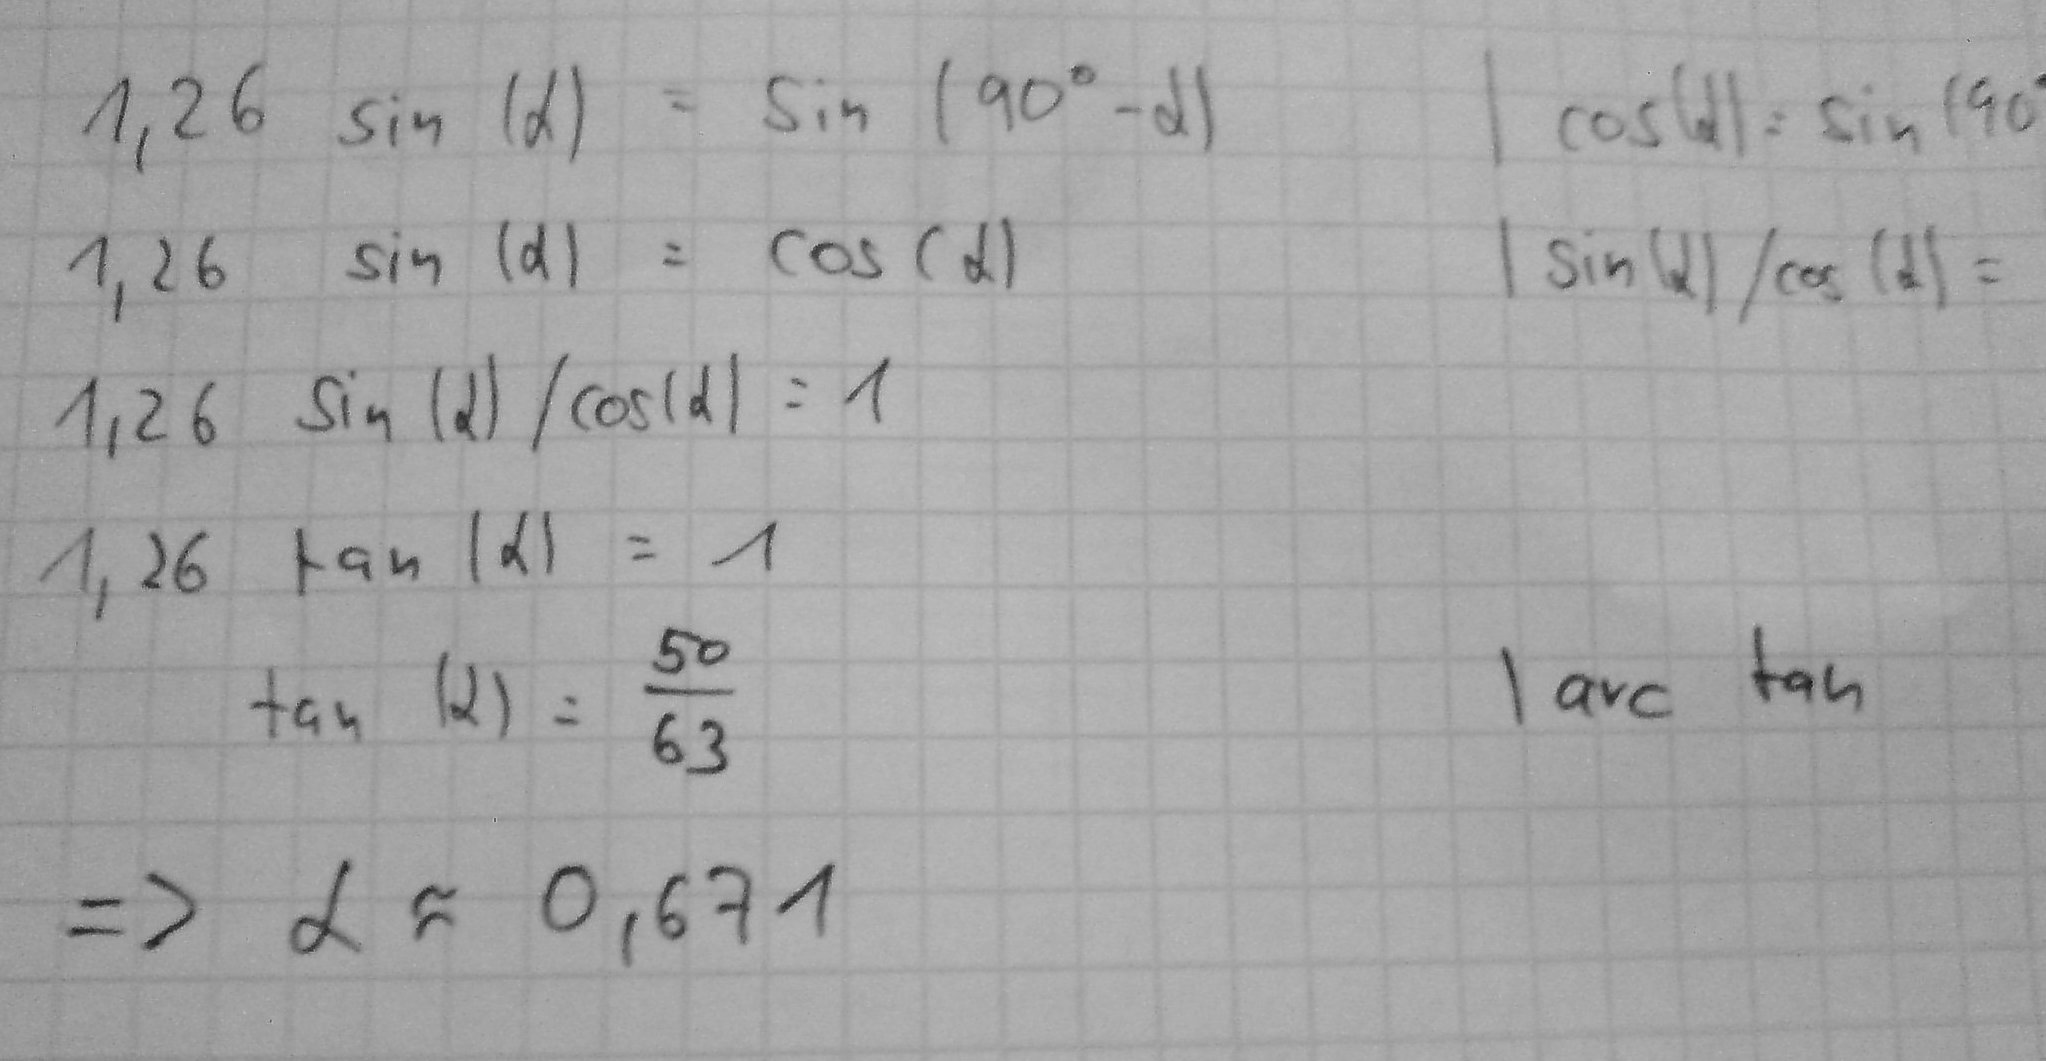 1,26 sin (α) = sin (90° - α) | cos(α) = sin (90°
1,26 sin (α) = cos (α) | sin(α) / cos (α) =
1,26 sin (α) / cos(α) = 1
1,26 tan (α) = 1
tan (α) = 50/63 | arc tan
=> α ≈ 0,671